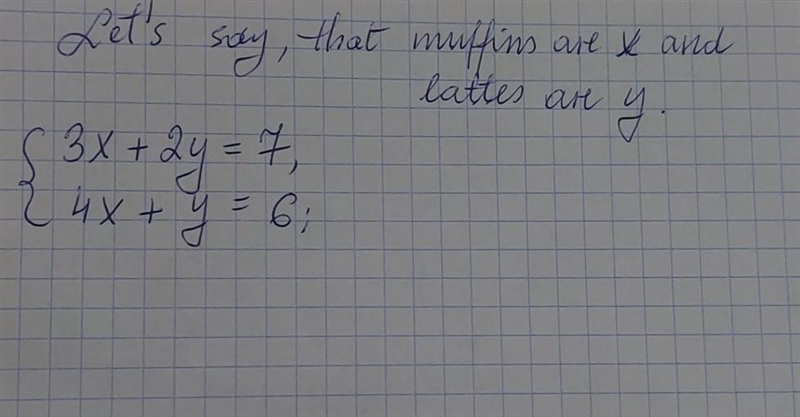 Let's say, that muffins are x and
lattes are y.
3x + 2y = 7,
4x + y = 6;